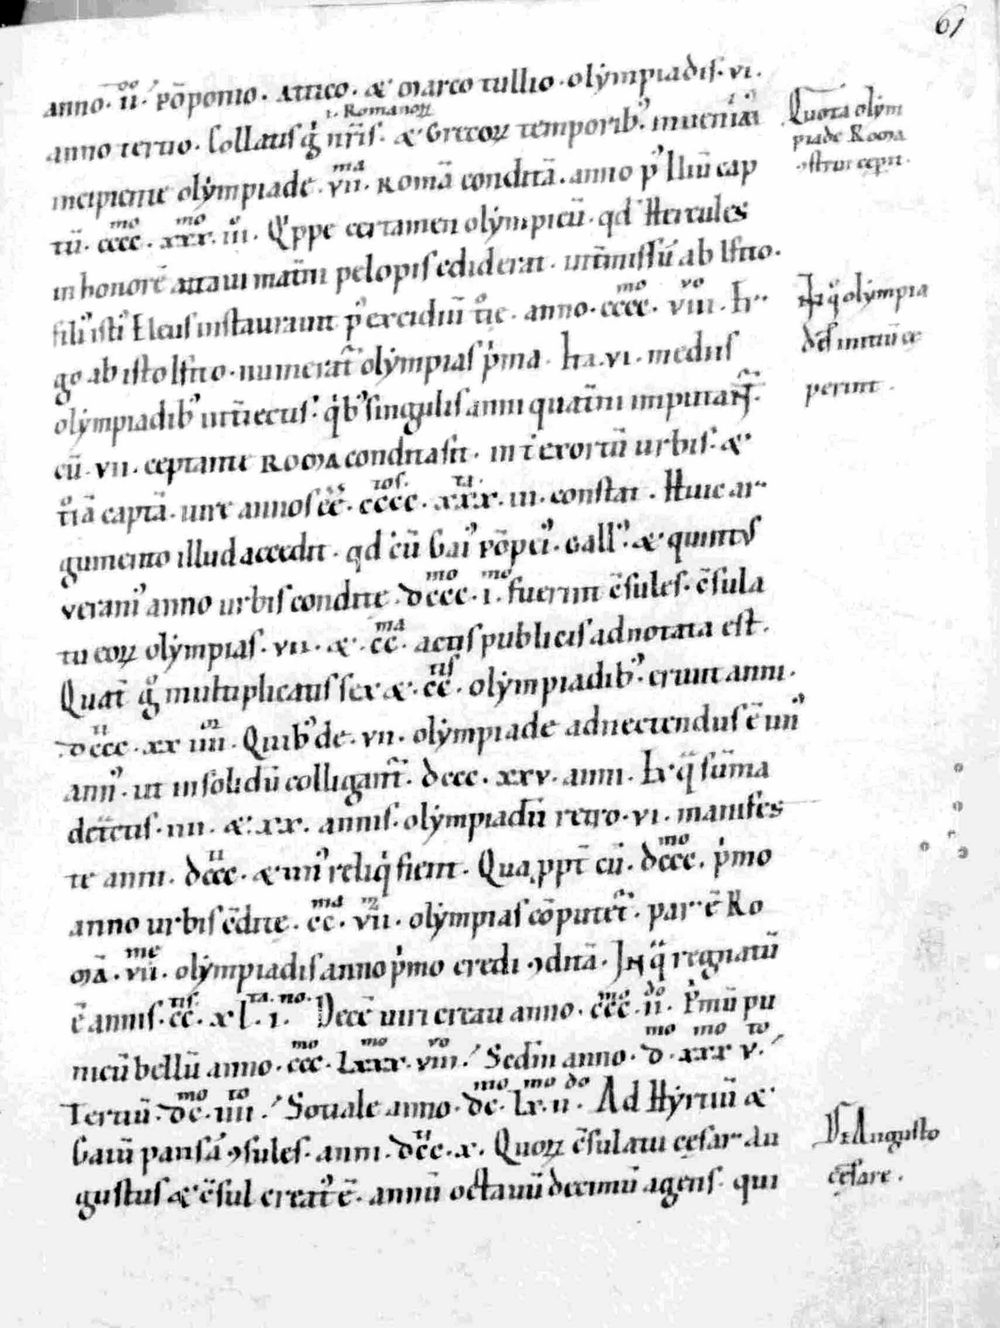 61
anno · ii · pōponio · Attico · & Marco tullio · olympiadis · vi ·
.i. Romanoꝝ
anno tertio · Collatis g̊ nr̄is · & Grecoꝝ temporib; · inueniūt
incipiente olympiade · vii ma · Romā conditā · anno p' Iliū cap
tū · cccc mo · xxx mo · iii o · Q'ppe certamen olympicū · qd' Hercules
in honorē ataui mat̄ni pelopis ediderat · int̄missū ab Ifito ·
filius isti' Eleus instaurauit p' excidiū t̊ie · anno · cccc mo · viii vo · Er
go ab isto Ifito · numerat' olympias p̄ma · Ita · vi · mediis
olympiadib; int̄iectis · q̄b' singulis anni quat̄ni inputant̄ ·
cū · vii · ceptante ROMA condita sit · int̄ exortū urbis · &
t̊iā captā · iure annos cc · cccc tos · xxx ta · iii · constat · Huic ar
gumento illud accedit · qd' cū Gai' pōpei' · Gall' · & quintus
verani' anno urbis condite · dccc mo · i mo · fuerint c̄sules · c̄sula
tu eoꝝ olympias · vii · & · cc ma · actis publicis adnotata est ·
Quat' g̊ multiplicatis sex & · cc tis · olympiadib; · erunt anni ·
dccc ti · xx iiii or · Quib' de · vii · olympiade adnectendus ē un'
ann' · ut in solidū colligant̄ · dccc · xxv · anni · Ex q̄ sūma
det̄ctis · iiii · & xx · annis · olympiadū retro · vi · manifes
te anni · dccc ti · & un' reliq̄ fient · Qua ppt̄ cū · dccc mo · p̄mo
anno urbis c̄dite · cc ma · vii ma · olympias cōputet̄ · par ē Ro
mā · vii me · olympiadis anno p̄mo credi ꝯditā · In q̄ regnatū
ē annis · cc tis · xl ta · i no · Decē uiri creati anno · ccc mo · ii do · P̄mū pu
nicū bellū anno · ccc mo · lxxx mo · viii vo · Sedm̄ anno · d mo · xxx mo · v to ·
Tertiū · dc mo · iiii to · Sotiale anno · dc mo · lx mo · ii do · Ad Hyrtiū &
Gaiū pansā ꝯsules · anni · dcc ti · x · Quoꝝ c̄sulatu cesar au
gustus & c̄sul creat' ē · annū octauū decimū agens · qui
Quota olym
piade Roma
ꝯstrui cepit ·
In q̊ olympia
des initiū ce
perint ·
De Augusto
cesare ·